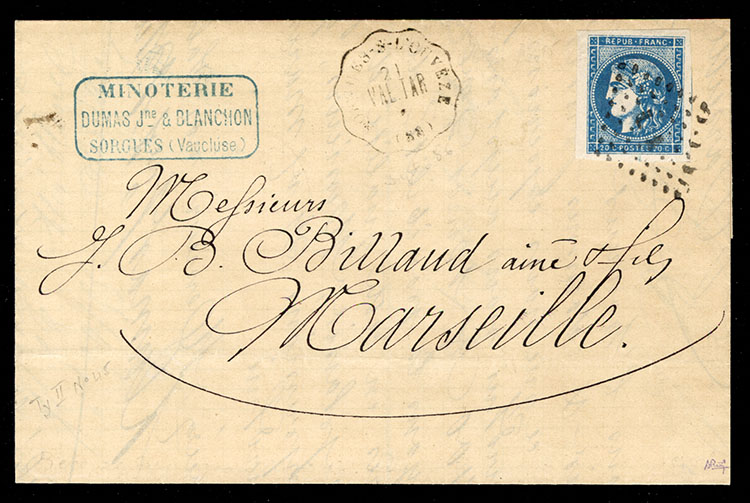 MINOTERIE
DUMAS Jne & BLANCHON
SORGUES (Vaucluse.)
-S-L'OUVEZE
21
VAL TAR
REPUB·FRANC·
20 C·POSTES·20 C·
Messieurs
J. B. Billaud ainé & fils
Marseille.
Ty II No 45